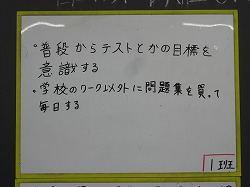 ・普段からテストとかの目標を
意識する
・学校のワーク以外に問題集を買って
毎日する
1班